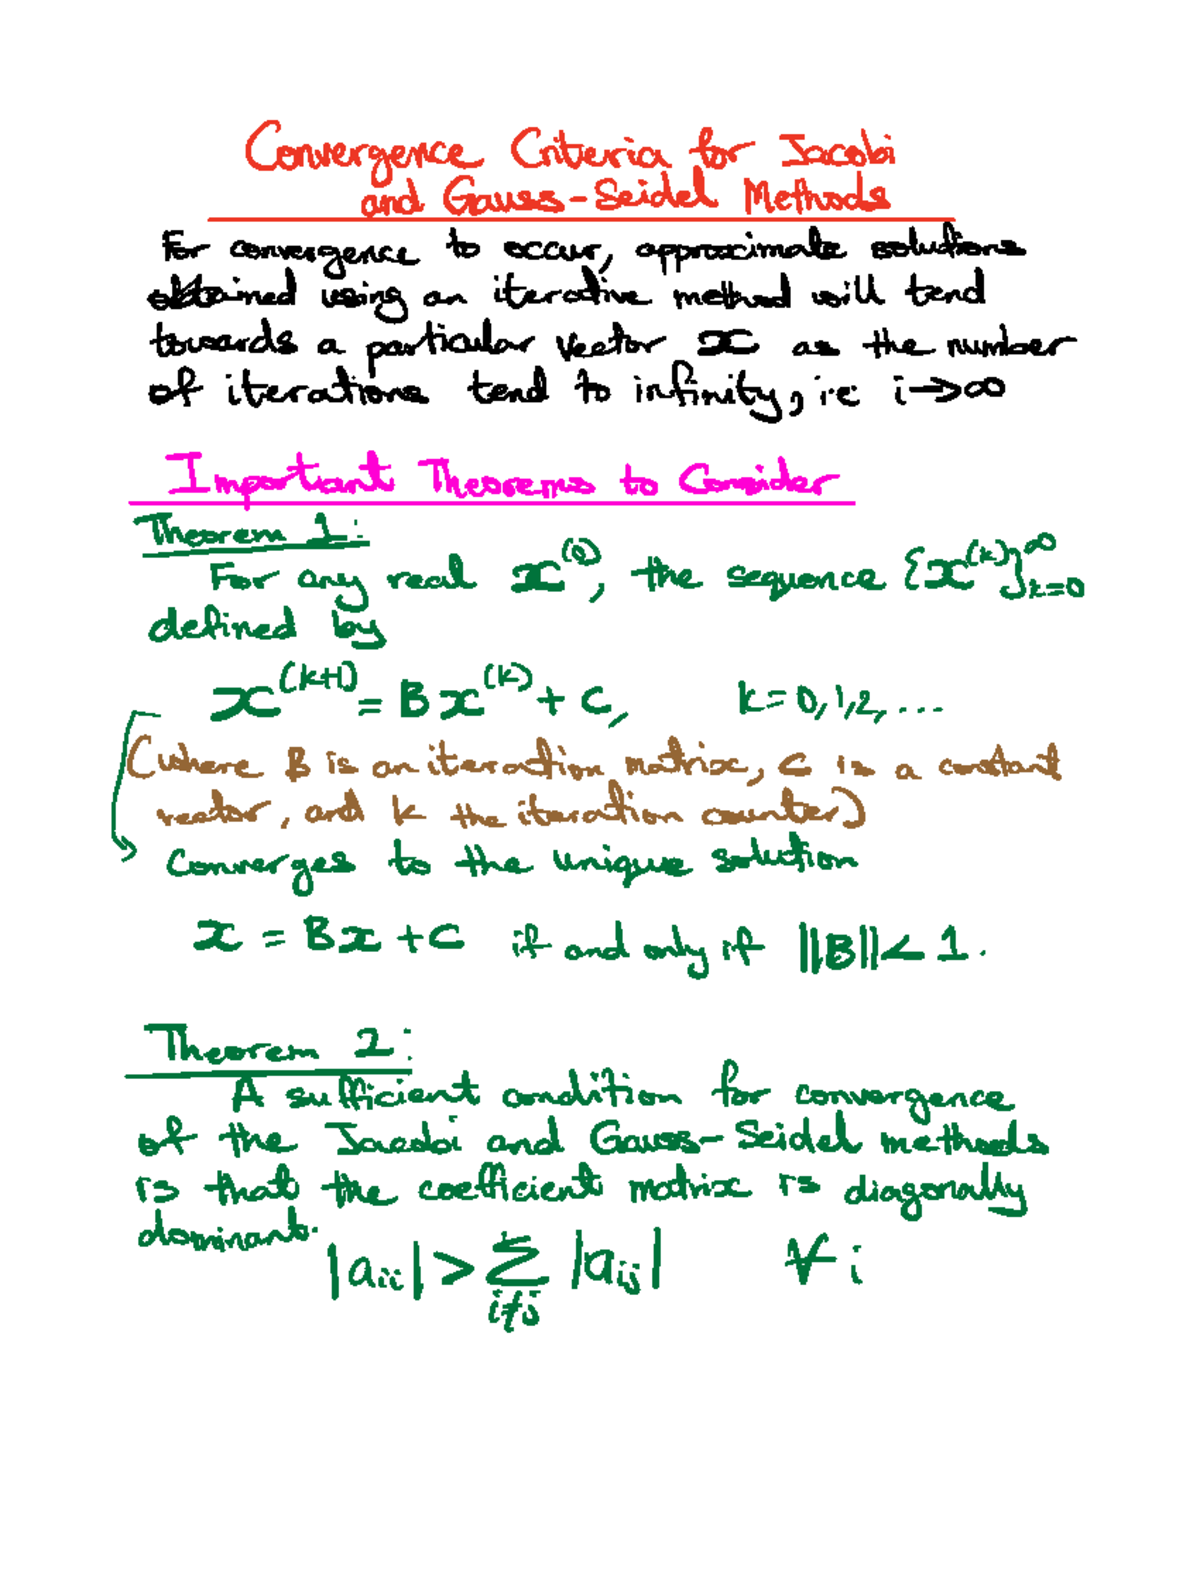 Convergence Criteria for Jacobi
and Gauss-Seidel Methods
For convergence to occur, approximate solutions
obtained using an iterative method will tend
towards a particular vector x as the number
of iterations tend to infinity, i.e i→∞
Important Theorems to Consider
Theorem 1:
For any real x^(0), the sequence {x^(k)}^∞_k=0
defined by
x^(k+1) = Bx^(k) + C, k=0,1,2,...
(where B is an iteration matrix, C is a constant
vector, and k the iteration counter)
Converges to the unique solution
x = Bx + C if and only if ||B|| < 1.
Theorem 2:
A sufficient condition for convergence
of the Jacobi and Gauss-Seidel methods
is that the coefficient matrix is diagonally
dominant.
|aᵢᵢ| > Σ_i≠j |aᵢⱼ| ∀ i